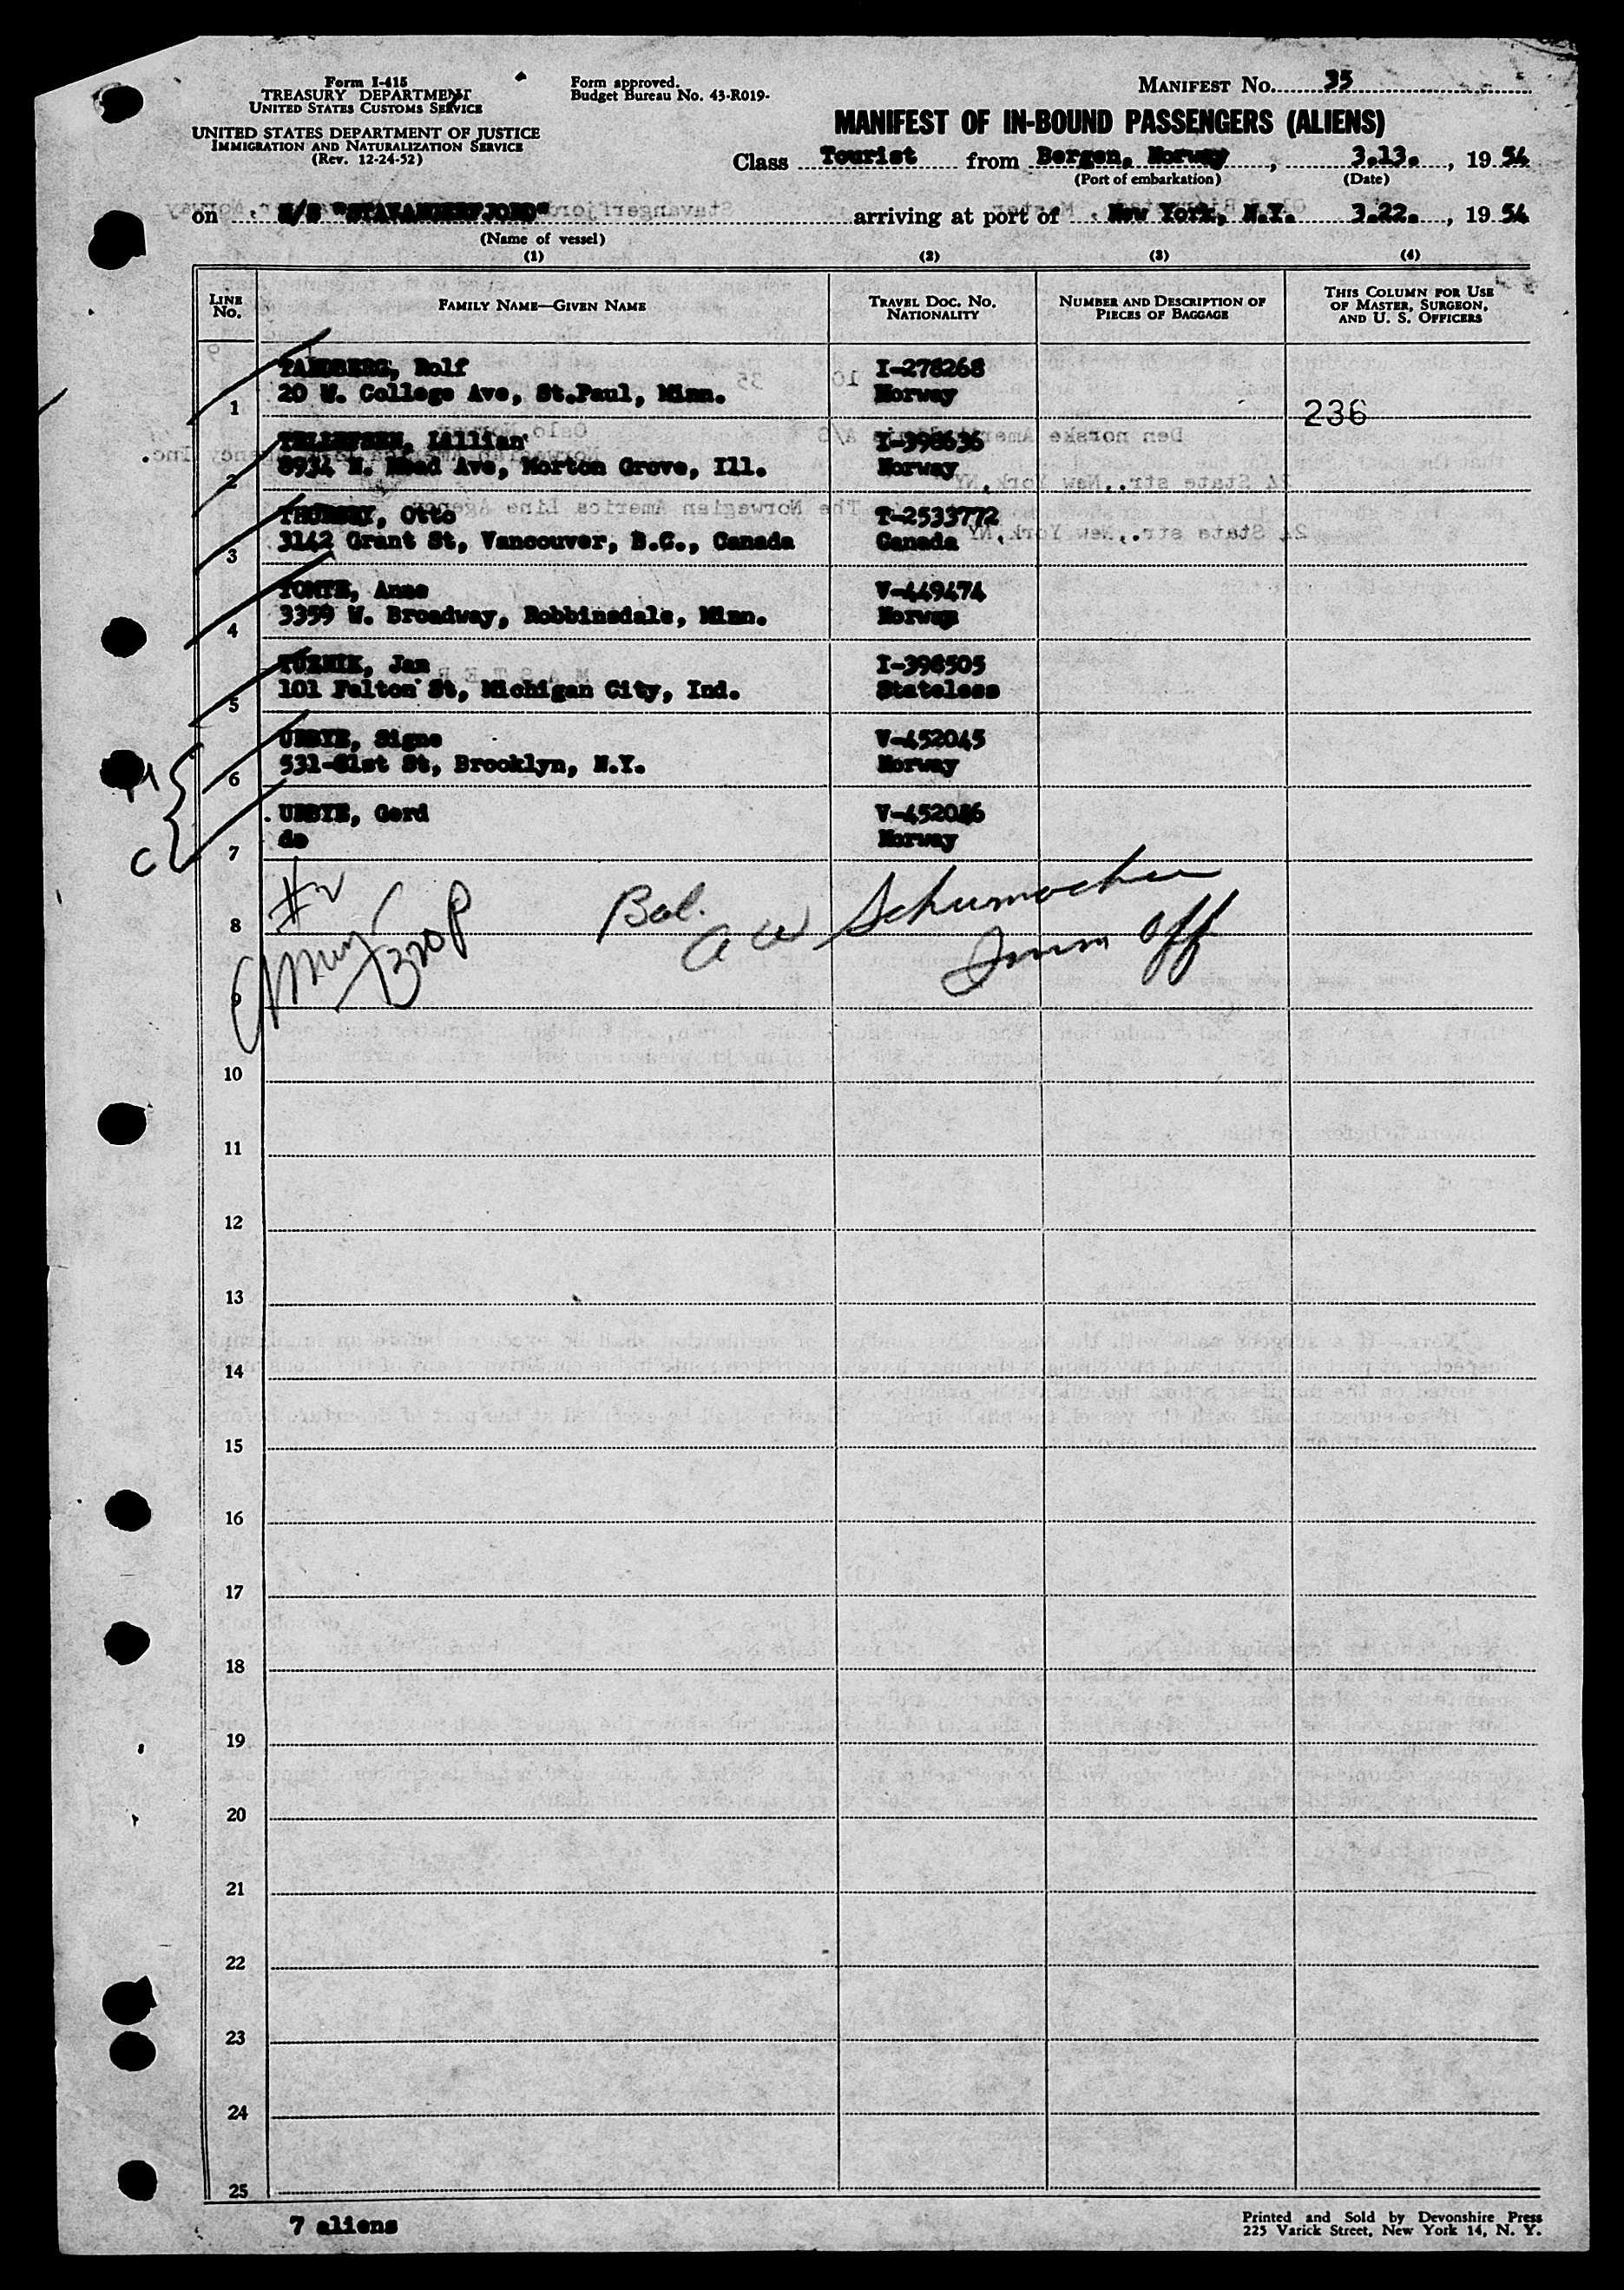 Form I-415
TREASURY DEPARTMENT
UNITED STATES CUSTOMS SERVICE
UNITED STATES DEPARTMENT OF JUSTICE
IMMIGRATION AND NATURALIZATION SERVICE
(Rev. 12-24-52)
Form approved.
Budget Bureau No. 43-R019-
MANIFEST NO. 35
MANIFEST OF IN-BOUND PASSENGERS (ALIENS)
Class Tourist from Bergen, Norway, 3.13., 19 54
(Port of embarkation) (Date)
on "STAVANGERFJORD" arriving at port of New York, N.Y. 3.22., 19 54
(Name of vessel)
(1) (2) (3) (4)
LINE NO. FAMILY NAME—GIVEN NAME TRAVEL DOC. NO. NATIONALITY NUMBER AND DESCRIPTION OF PIECES OF BAGGAGE THIS COLUMN FOR USE OF MASTER, SURGEON, AND U. S. OFFICERS
1 TANDBERG, Rolf I-278268
20 W. College Ave, St.Paul, Minn. Norway 236
2 TELLEFSEN, Lillian I-398636
8934 N. Mead Ave, Morton Grove, Ill. Norway
3 Otto T-2533772
3142 Grant St, Vancouver, B.C., Canada Canada
4 TOMTE, Anne V-449474
3359 W. Broadway, Robbinsdale, Minn. Norway
5 Jan I-398505
101 Felton St, Michigan City, Ind. Stateless
6 Signe V-452045
531-61st St, Brooklyn, N.Y. Norway
7 Gerd V-452046
do Norway
M
C
#2
Bal. a w Schumacher
Imm Off
8
9
10
11
12
13
14
15
16
17
18
19
20
21
22
23
24
25
7 aliens
Printed and Sold by Devonshire Press
225 Varick Street, New York 14, N. Y.